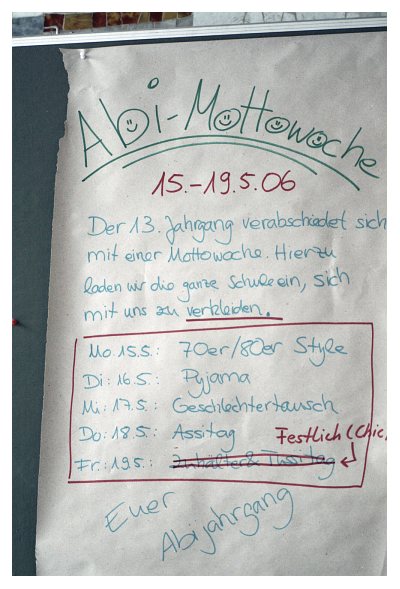 Abi-Mottowoche
15.-19.5.06
Der 13. Jahrgang verabschiedet sich
mit einer Mottowoche. Hierzu
laden wir die ganze Schule ein, sich
mit uns zu verkleiden.
Mo. 15.5.: 70er/80er Style
Di: 16.5.: Pyjama
Mi: 17.5.: Geschlechtertausch
Do: 18.5.: Assitag
Festlich (Chic)
Fr.: 19.5.: Zuhälter & Tussitag
Euer
Abijahrgang